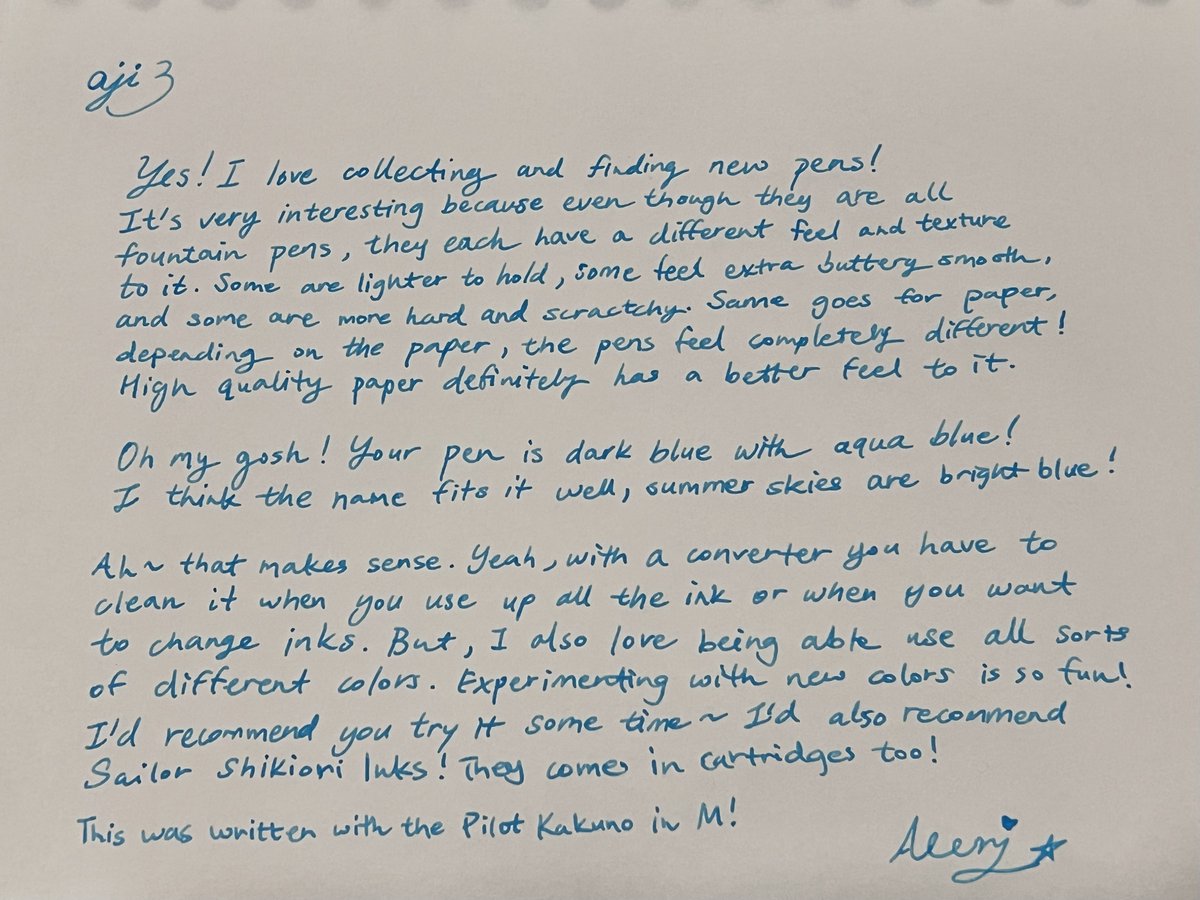 aji 3
Yes! I love collecting and finding new pens!
It's very interesting because even though they are all
fountain pens, they each have a different feel and texture
to it. Some are lighter to hold, some feel extra buttery smooth,
and some are more hard and scractchy. Same goes for paper,
depending on the paper, the pens feel completely different!
High quality paper definitely has a better feel to it.
Oh my gosh! Your pen is dark blue with aqua blue!
I think the name fits it well, summer skies are bright blue!
Ah~ that makes sense. Yeah, with a converter you have to
clean it when you use up all the ink or when you want
to change inks. But, I also love being able use all sorts
of different colors. Experimenting with new colors is so fun!
I'd recommend you try it some time~ I'd also recommend
Sailor Shikiori Inks! They come in cartridges too!
This was written with the Pilot Kakuno in M!